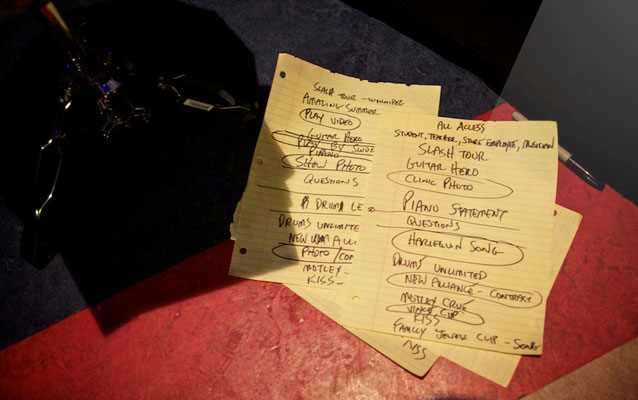 SLASH TOUR - WINNIPEG
AMAZING SUMMER
PLAY VIDEO
GUITAR HERO
SHOW PHOTO
QUESTIONS
DRUM LE
DRUMS UNLIMITE
NEW ALLI
PHOTO / CON
MOTLEY
KISS -
ALL ACCESS
STUDENT, TEACHER, STORE EMPLOYEE, MUSICIAN
SLASH TOUR
GUITAR HERO
CLINIC PHOTO
PIANO STATEMENT
QUESTIONS
HARLEQUIN SONG
DRUMS UNLIMITED
NEW ALLIANCE - CONTRACT
MOTLEY CRUE
VINCE CLIP
KISS
FAMILY JEWELS CLIP - SONG
KISS